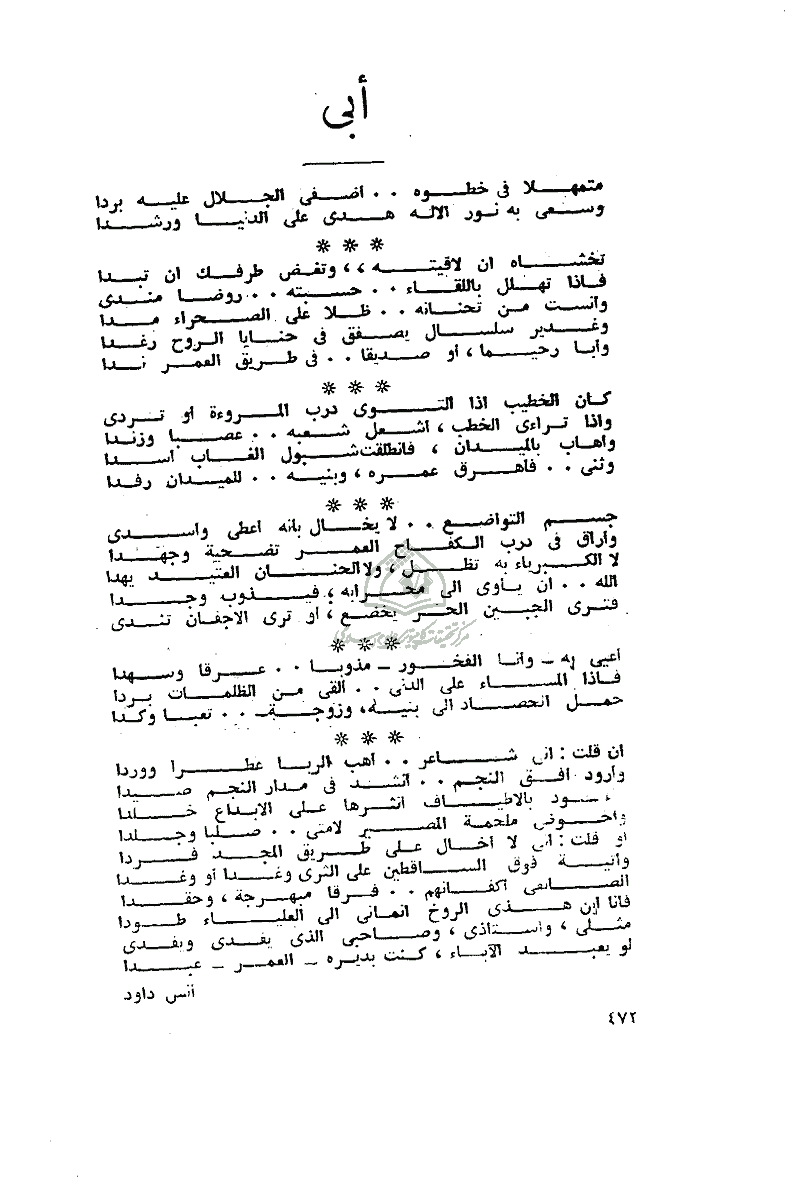 أبى
متمهلا فى خطوه . . اضفى الجلال عليه بردا
وسعى به نور الاله هدى على الدنيا ورشدا
***
تخشاه ان لاقيته ،، وتغض طرفك ان تبدا
فاذا تهلل باللقاء . . حسبته . . روضا مندى
وانست من تحنانه . . ظلا على الصحراء مدا
وغدير سلسال يصفق فى حنايا الروح رغدا
وأبا رحيما ، أو صديقا . . فى طريق العمر ندا
***
كان الخطيب اذا التوى درب المروءة او تردى
واذا تراءى الخطب ، اشعل شعبه . . عصبا وزندا
واهاب بالميدان ، فانطلقت شبول الغاب أسدا
وثنى . . فاهرق عمره ، وبنيه . . للميدان رفدا
***
جسم التواضع . . لا يخال بانه اعطى واسدى
وأراق فى درب الكفاح العمر تضحية وجهدا
لا الكبرياء به تظل ، ولا الحنان العتيد يهدا
الله . . ان يأوى الى محرابه ، فيذوب وجدا
فترى الجبين الحر يخضع ، أو ترى الاجفان تندى
***
أعيى به - وأنا الفخور - مذوبا . . عرقا وسهدا
فاذا المساء على الدنى . . ألقى من الظلمات بردا
حمل الحصاد الى بنيه ، وزوجة . . تعبا وكدا
***
ان قلت : انى شاعر . . أهب الربا عطرا ووردا
وأرود افق النجم . . أنشد فى مدار النجم صيدا
بالاطياف انثرها على الابداع خلدا
واخوض ملحمة المصير لامتى . . صلبا وجلدا
او قلت : انى لا اخال على طريق المجد فردا
وانية فوق الساقطين على الثرى وغدا أو وغدا
أكفانهم . . فرقا مبهرجة ، وحقدا
فانا ابن هذى الروح انمانى الى العلياء طودا
مثلى ، واستاذى ، وصاحبى الذى يفدى ويفدى
لو يعبد الآباء ، كنت بديره - العمر - عبدا
أنس داود
٤٧٢